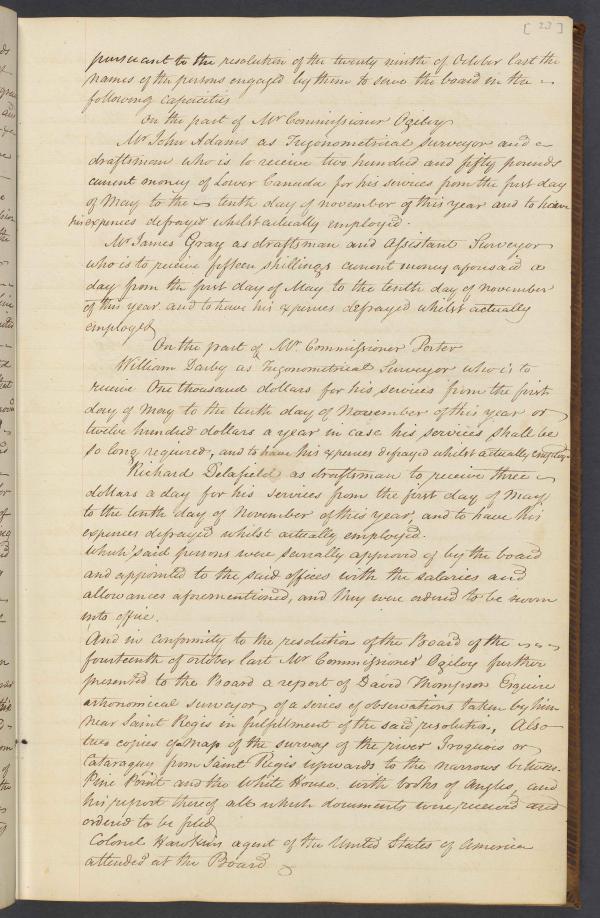 [23]
pursuant to the resolution of the twenty ninth of October last the
names of the persons engaged by them to serve the board in the
following capacities
On the part of Mr Commissioner Ogilvy
Mr John Adams as Trigonometrical Surveyor and
draftsman who is to receive two hundred and fifty pounds
current money of Lower Canada for his services from the first day
of May to the tenth day of november of this year and to have
his expences defrayed whilst actually employed.
Mr James Gray as draftsman and Assistant Surveyor
who is to receive fifteen shillings current money aforesaid a
day from the first day of May to the tenth day of november
of this year and to have his expenses defrayed whilst actually
employed
On the part of Mr. Commissioner Porter
William Darby as Trigonometrical Surveyor who is to
receive One thousand dollars for his services from the first
day of May to the tenth day of November of this year or
twelve hundred dollars a year in case his services shall be
so long required, and to have his expenses defrayed whilst actually employ
Richard Delafield as draftsman to receive three
dollars a day for his services from the first day of May
to the tenth day of November of this year, and to have his
expences defrayed whilst actually employed.
Which said persons were severally approved of by the board
and appointed to the said offices with the salaries and
allowances aforementioned, and they were ordered to be sworn
into office.
And in conformity to the resolution of the Board of the
fourteenth of october last Mr Commissioner Ogilvy further
presented to the Board a report of David Thompson Esquire
astronomical surveyor, of a series of observations taken by him
near Saint Regis in fulfillment of the said resolution, Also
two copies of map of the survey of the river Iroquois or
Cataraguy from Saint Regis upwards to the narrows between
Pine Point and the White House. with books of Angles, and
his report thereof all which documents were received and
ordered to be filed
Colonel Hawkins agent of the United States of America
attended at the Board